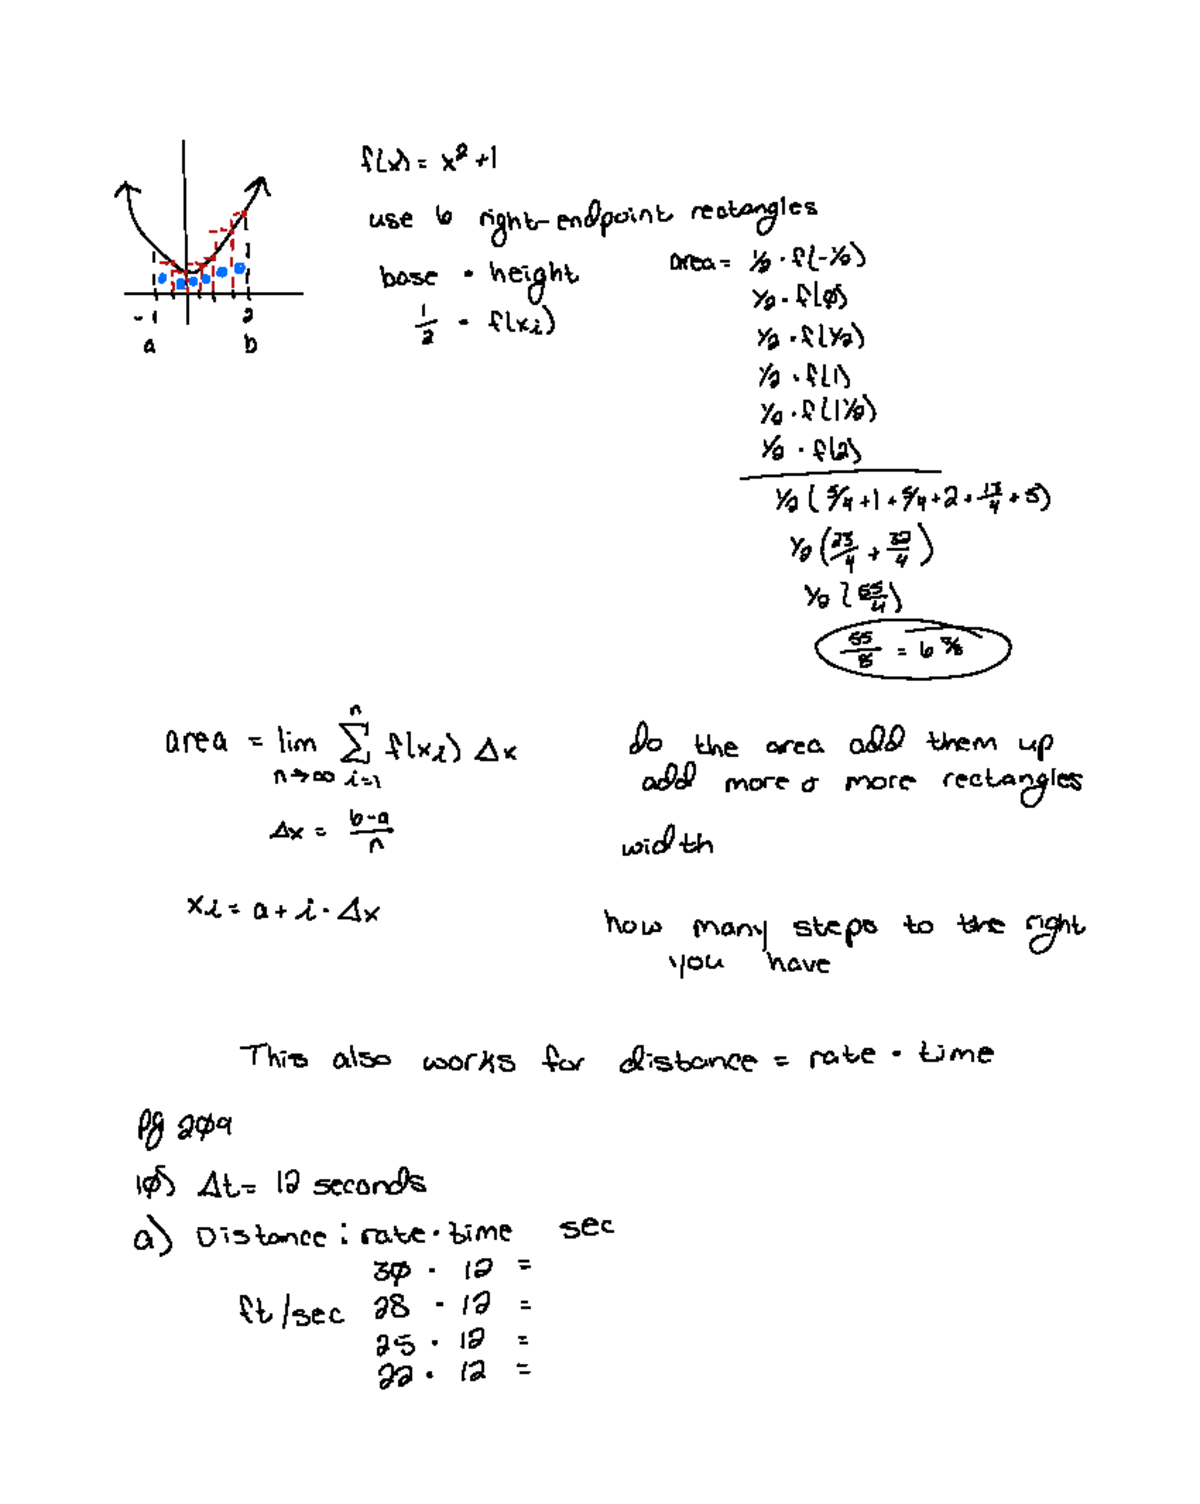 f(x) = x² + 1
use 6 right-endpoint rectangles
base • height
½ • f(xi)
area = ½ • f(-½)
½ • f(0)
½ • f(½)
½ • f(1)
½ • f(1½)
½ • f(2)
½ (5/4 + 1 + 5/4 + 2 + 13/4 + 5)
½ (23/4 + 32/4)
½ (55/4)
55/8 = 6 7/8
-1 2
a b
area = lim n→∞ Σ i=1 n f(xi) Δx
do the area add them up
add more & more rectangles
Δx = b-a/n
width
xi = a + i • Δx
how many steps to the right
you have
This also works for distance = rate • time
Pg 209
10) Δt = 12 seconds
a) Distance : rate • time sec
30 • 12 =
ft/sec 28 • 12 =
25 • 12 =
22 • 12 =